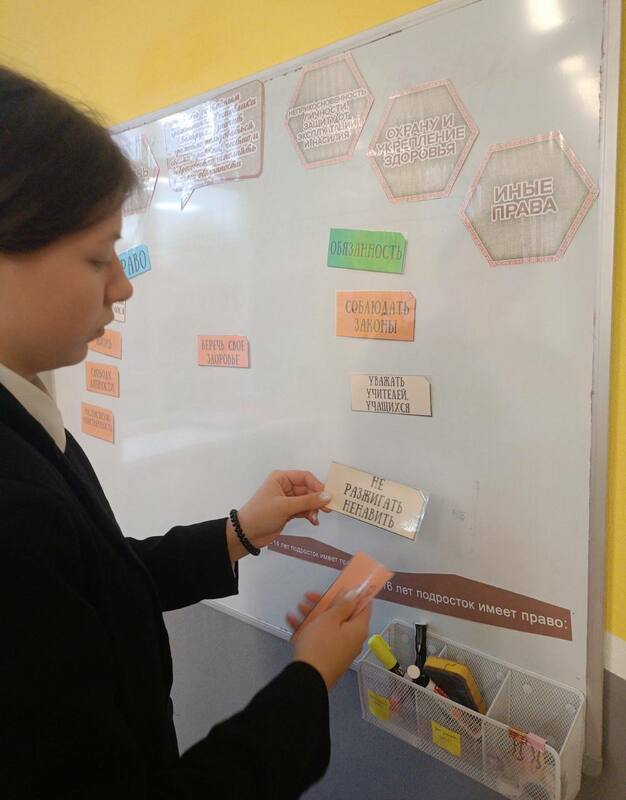 НЕПРИКОСНОВЕННОСТЬ
ЛИЧНОСТИ,
ЗАЩИТУ ОТ
ЭКСПЛУАТАЦИИ
И НАСИЛИЯ
ОХРАНУ И
УКРЕПЛЕНИЕ
ЗДОРОВЬЯ
ИНЫЕ
ПРАВА
ПРАВО
ОБЯЗАННОСТЬ
СОБЛЮДАТЬ
ЗАКОНЫ
БЕРЕЧЬ СВОЕ
ЗДОРОВЬЕ
ЖИЗНЬ
СВОБОДУ
ЛИЧНОСТИ
УВАЖАТЬ
УЧИТЕЛЕЙ,
УЧАЩИХСЯ
НЕ
РАЗЖИГАТЬ
НЕНАВИСТЬ
14 лет подросток имеет
16 лет подросток имеет право: